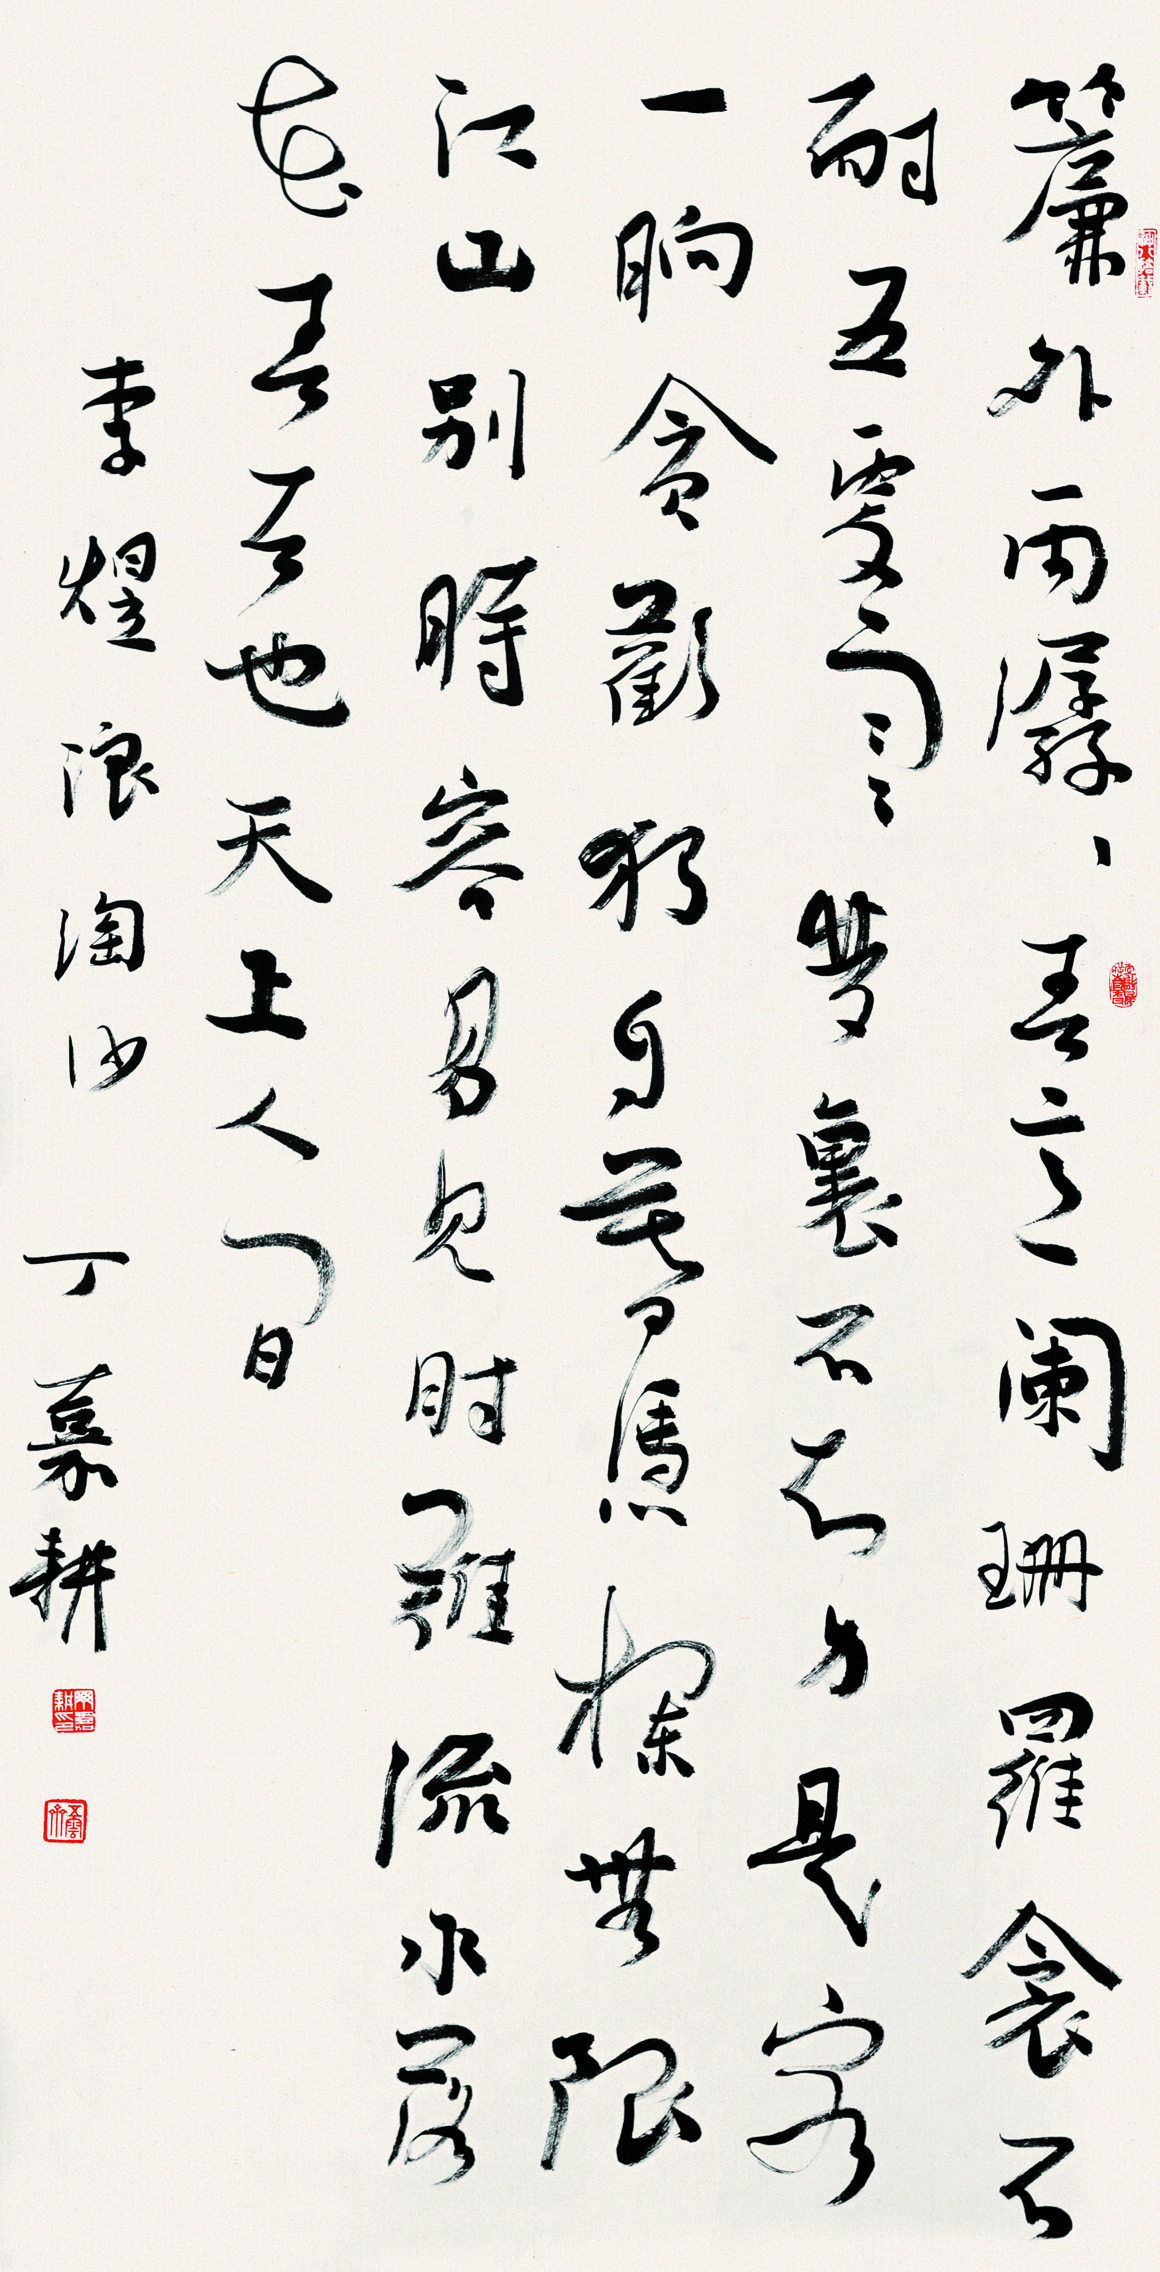 簾外雨潺、春意阑珊羅衾不
耐五更寒夢裏不知身是客
一晌貪歡獨自暮憑欄無限
江山别時容易見时難流水落
花春去也天上人間
李煜浪淘沙 丁嘉耕